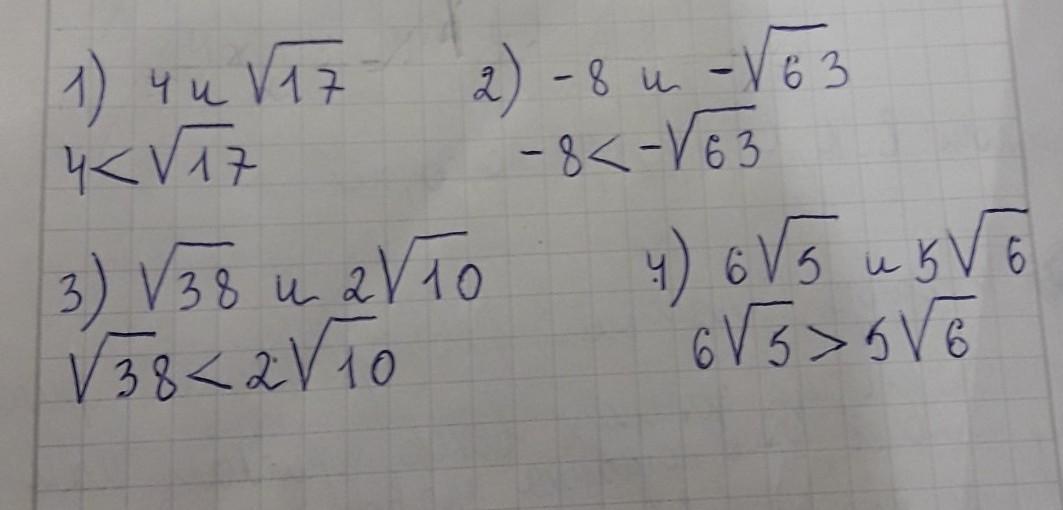 1) 4 и √17
4 < √17
2) -8 и -√63
-8 < -√63
3) √38 и 2√10
√38 < 2√10
4) 6√5 и 5√6
6√5 > 5√6